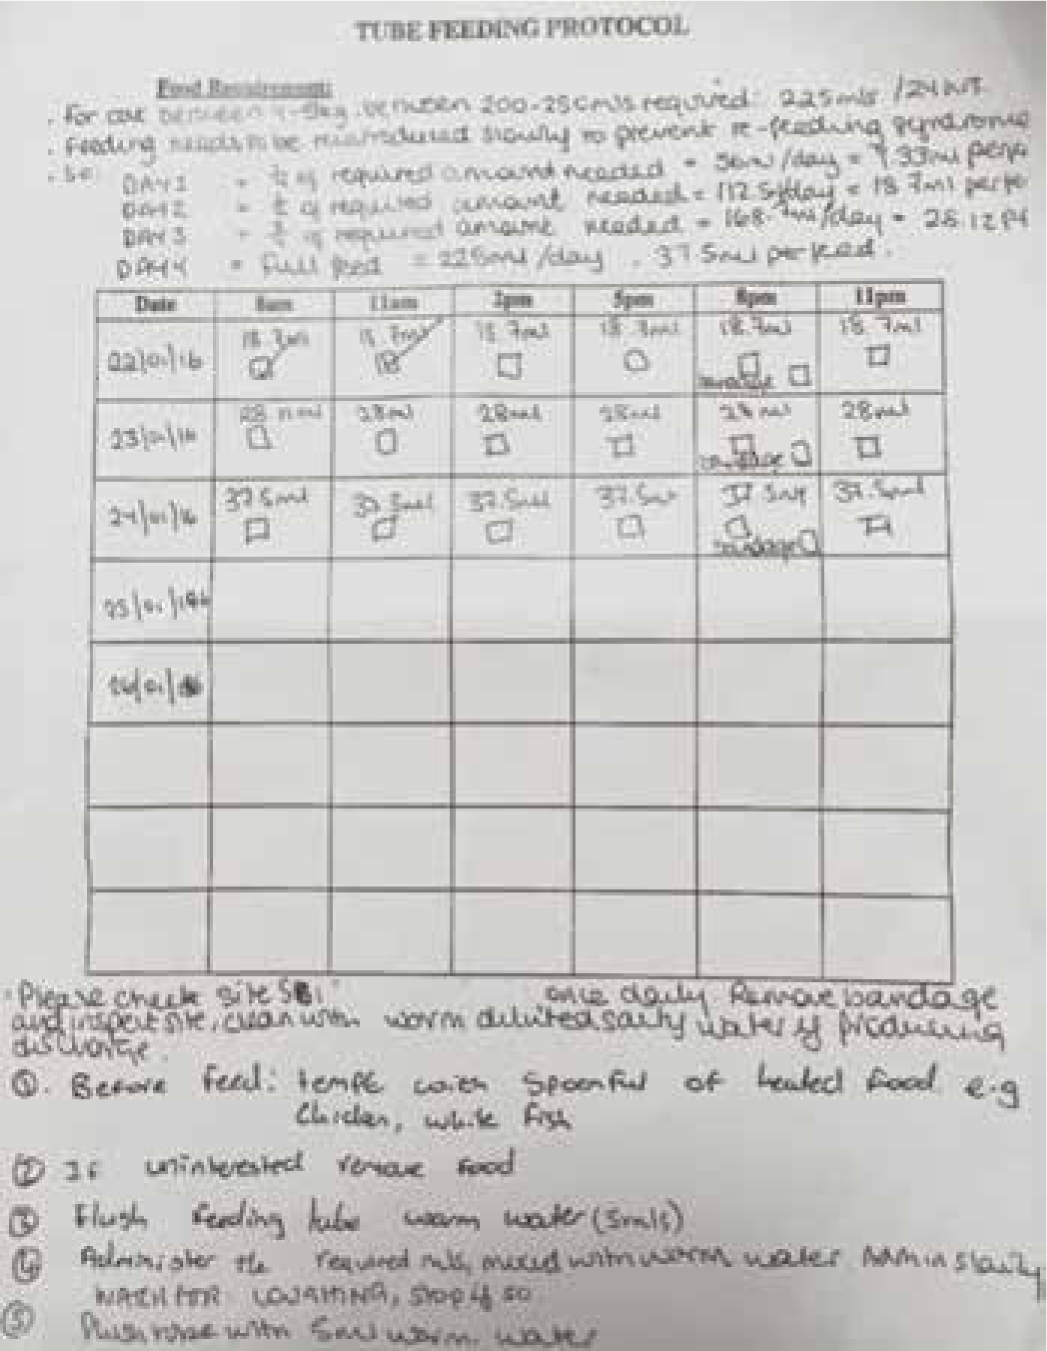 TUBE FEEDING PROTOCOL
Food Requirement:
. For cat between 4-5kg between 200-250mls required: 225mls /24hrs
. Feeding needs to be reintroduced slowly to prevent re-feeding syndrome
. So:
DAY 1 = ¼ of required amount needed = 56ml /day = 9.33ml per
DAY 2 = ½ of required amount needed = 112.5/day = 18.7ml per
DAY 3 = ¾ of required amount needed = 168.7ml/day = 28.12
DAY 4 = Full feed = 225ml/day . 37.5ml per feed.
Date 8am 11am 2pm 5pm 8pm 11pm
22/01/16 18.7ml 18.7ml 18.7ml 18.7ml 18.7ml 18.7ml
bandage
23/01/16 28ml 28ml 28ml 28ml 28ml
bandage
24/01/16 37.5ml 37.5ml 37.5ml 37.5ml 37.5ml 37.5ml
bandage
25/01/16
26/01/16
Please check site once daily Remove bandage
and inspect site, clean with warm diluted salty water if producing
discharge.
①. Before feed: tempt with spoonful of heated food e.g
Chicken, white fish
② If uninterested remove food
③ Flush feeding tube warm water (5mls)
④ Administer the required mls, mixed with warm water Admin slowly
WATCH FOR VOMITING, stop if so
⑤ Flush tube with 5ml warm water